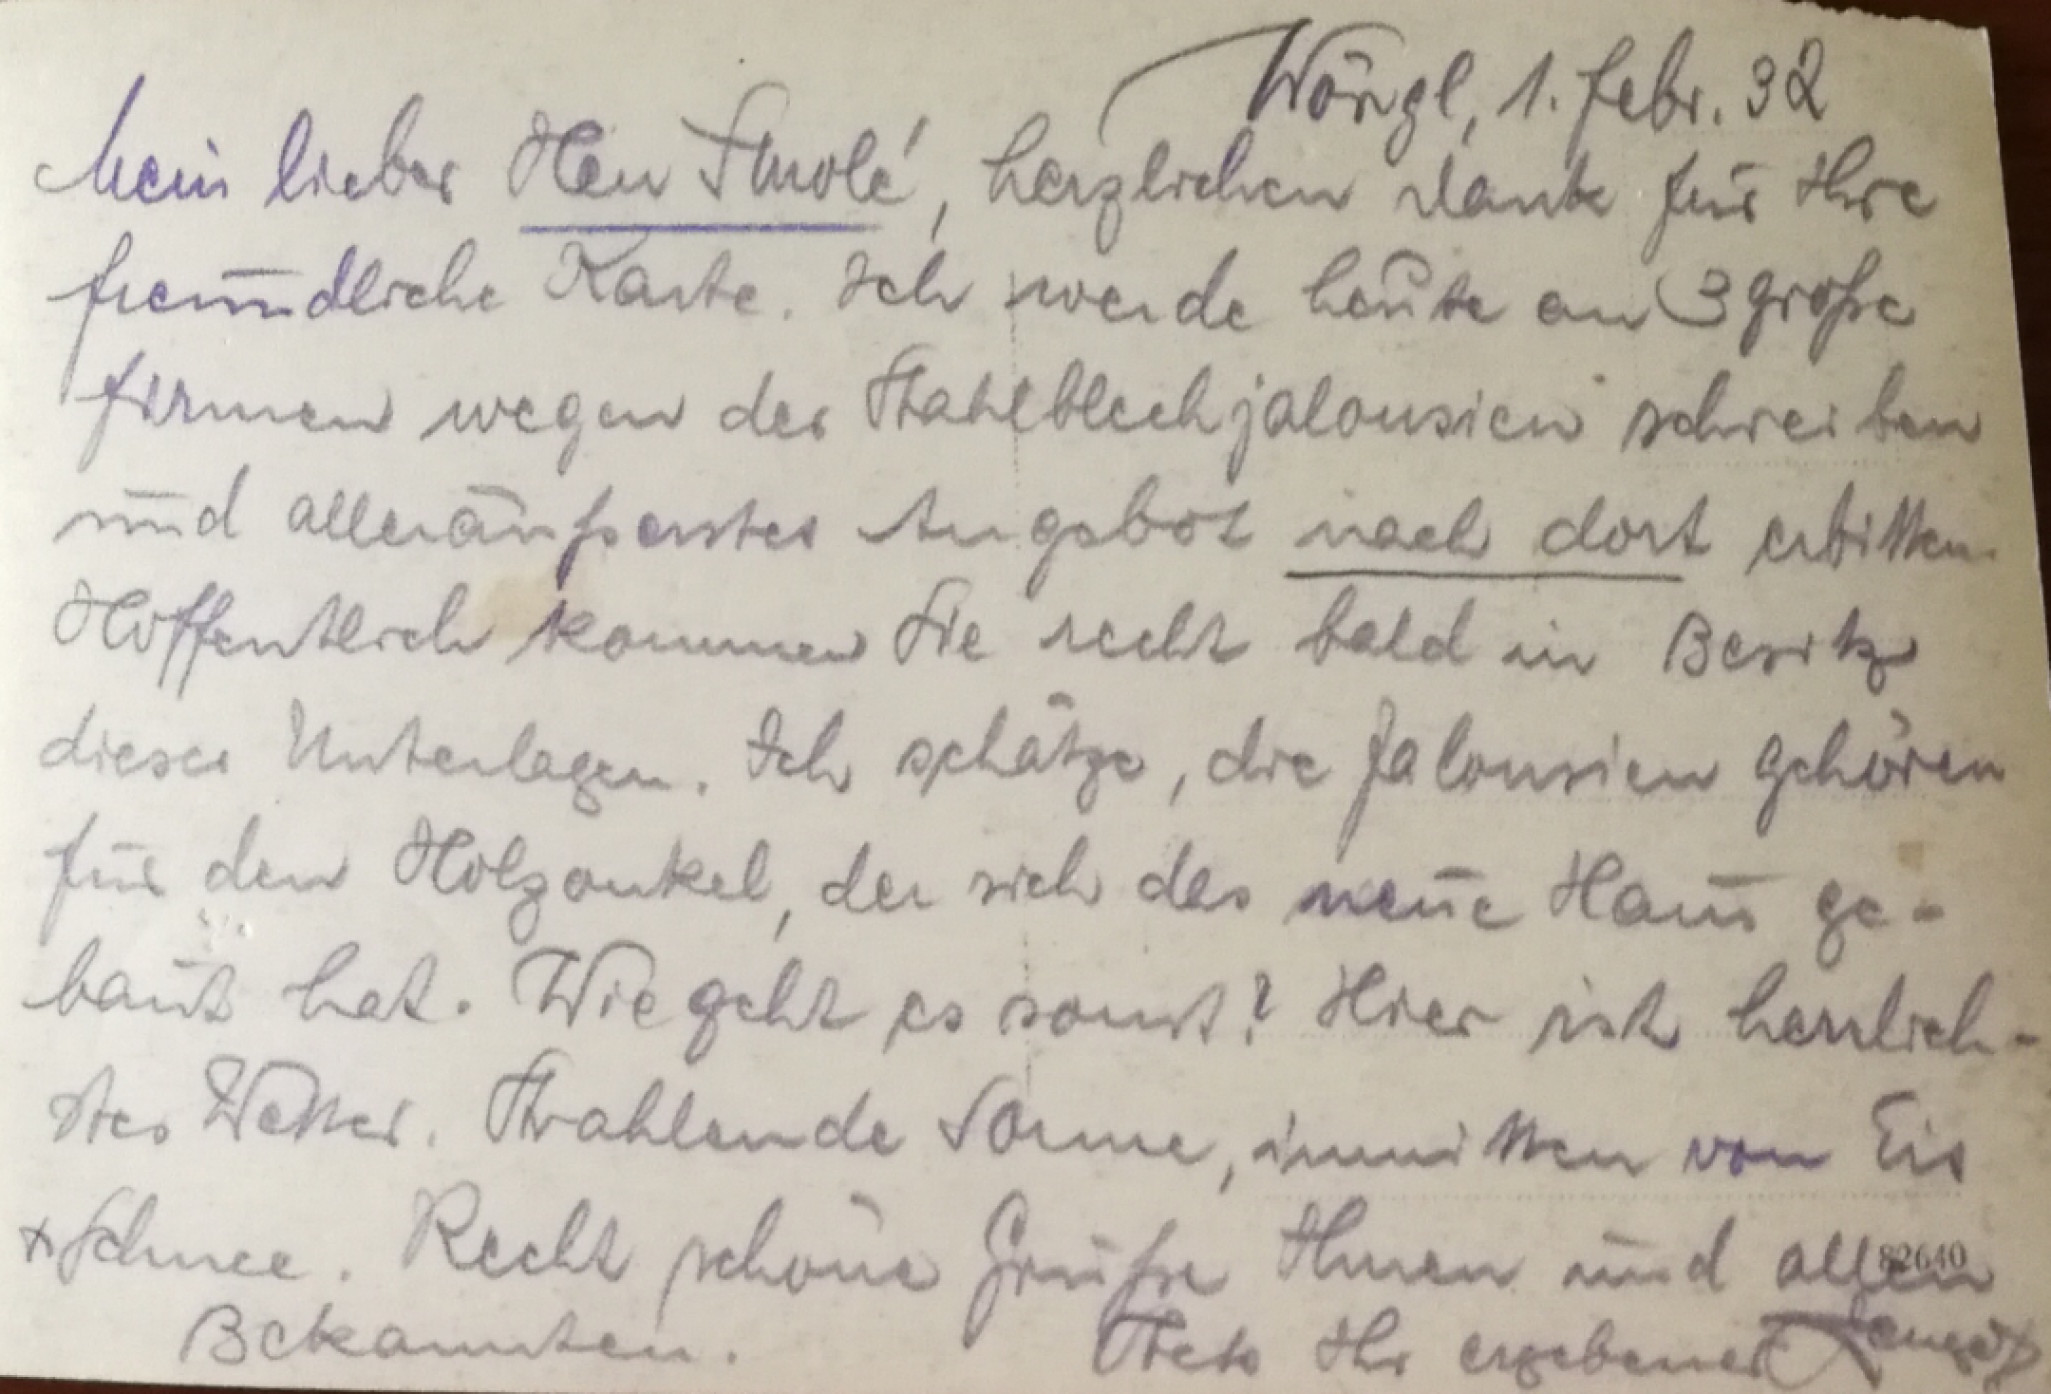 Wörgl, 1. Febr. 32
Mein lieber Herr Smolé, herzlichen Dank für Ihre
freundliche Karte. Ich werde heute an 3 große
Firmen wegen der Stahlblechjalousien schreiben
und alleräußerstes Angebot nach dort erbitten.
Hoffentlich kommen Sie recht bald in Besitz
dieser Unterlagen. Ich schätze, die Jalousien gehören
für den Holzonkel, der sich das neue Haus ge-
baut hat. Wie geht es sonst? Hier ist herrlich-
stes Wetter. Strahlende Sonne, inmitten von Eis
+ Schnee. Recht schöne Grüße Ihnen und allen
82640
Bekannten. Stets Ihr ergebener